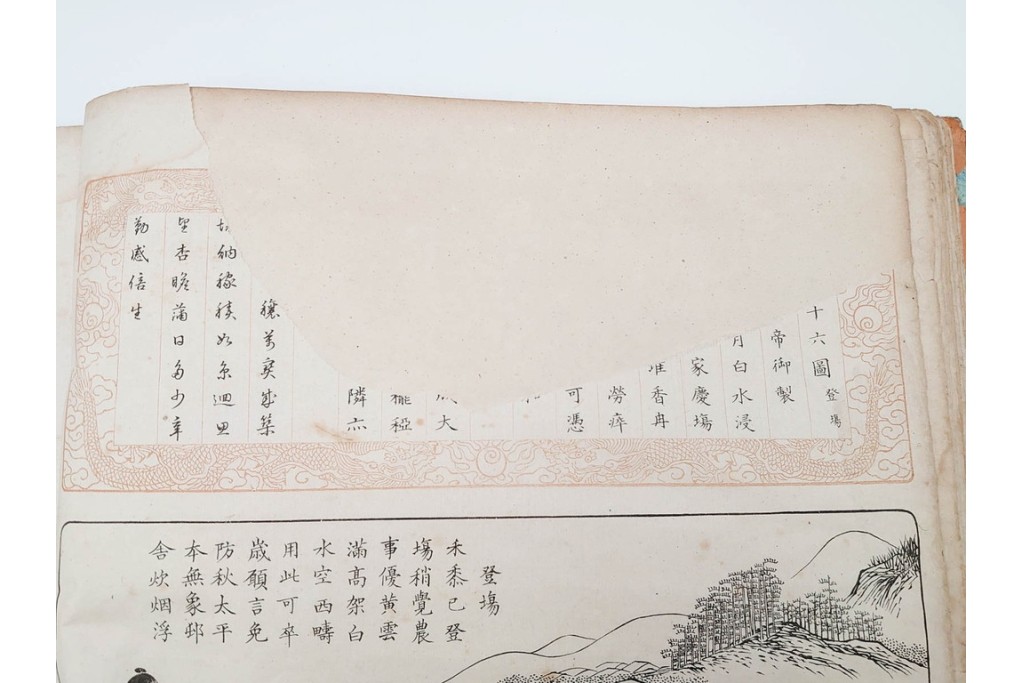 十六圖 登塲
帝御製
月白水浸
家慶塲
香冉
勞瘁
可憑
大
稏
隣亦
穰萬寳成築
納稼積如京迴思
望杏瞻蒲日多少辛
勤感倍生
登塲
禾黍已登
塲稍覺農
事優黄雲
滿高架白
水空西疇
用此可卒
歲願言免
防秋太平
本無象邨
舍炊烟浮